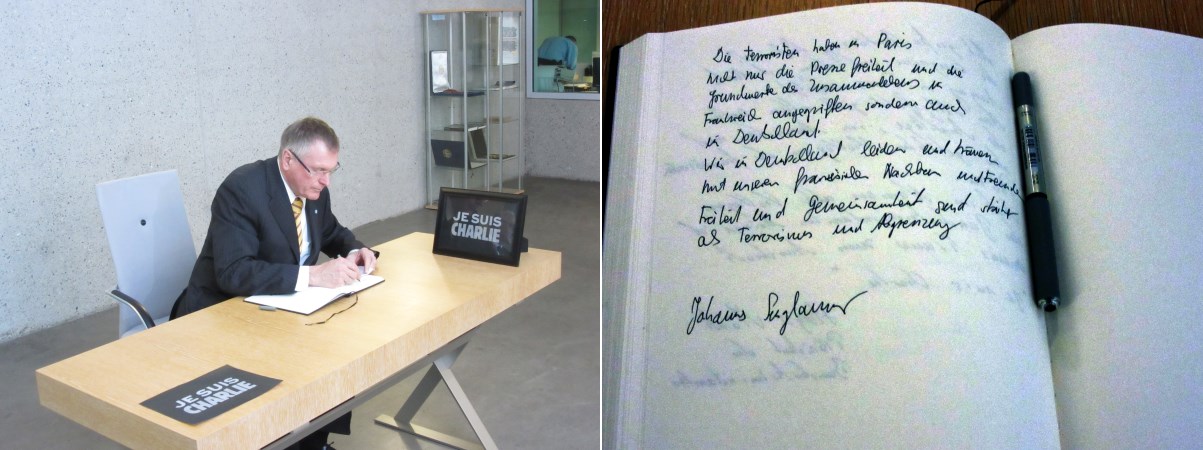 JE SUIS
CHARLIE
JE SUIS
CHARLIE
Die Terroristen haben in Paris
nicht nur die Pressefreiheit und die
Grundwerte des Zusammenlebens in
Frankreich angegriffen sondern auch
in Deutschland.
Wir in Deutschland leiden und trauern
mit unseren französischen Nachbarn und Freunden
Freiheit und Gemeinsamkeit sind stärker
als Terrorismus und Abgrenzung
Johannes Singhammer